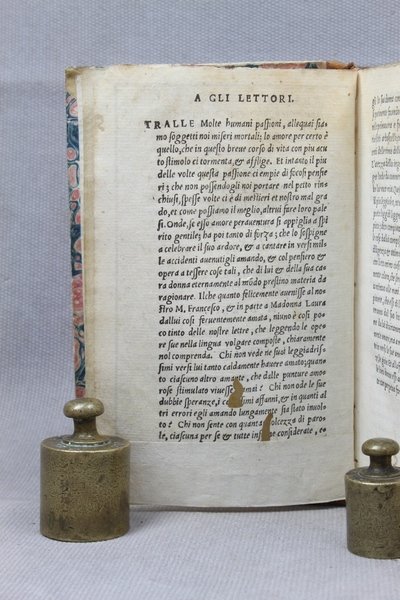 A GLI LETTORI.
TRALLE Molte humani passioni, allequai sia-
mo soggetti noi miseri mortali; lo amore per certo è
quello, che in questo breue corso di vita con piu acu
to stimolo ci tormenta, & afflige. Et intanto il piu
delle volte questa passione ci empie di focosi pensie
ri; che non possendogli noi portare nel petto rin
chiusi, spesse volte ci è di mestieri et nostro mal gra
do, et come possiamo il meglio, altrui fare loro pale
si. Onde, se esso amore perauentura si appiglia a spi
rito gentile; ha poi tanto di forza; che lo sospigne
a celebrare il suo ardore, & a cantare in versi mil-
le accidenti auenuti gli amando, & col pensiero &
opera a tessere cose tali, che di lui & della sua ca
ra donna eternamente al mõdo prestino materia da
ragionare. Ilche quanto felicemente auenisse al no-
stro M. Francesco, & in parte a Madonna Laura
dallui cosi feruentemente amata, niuno è cosi po-
co tinto delle nostre lettre, che leggendo le ope-
re sue nella lingua volgare composte, chiaramente
nol comprenda. Chi non vede ne suoi leggiadris-
simi versi lui tanto caldamente hauere amato; quan
to ciascuno altro amante, che dalle punture amo-
rose stimolato viuesse Chi non ode le sue
dubbie speranze, i affanni, & in quanti al
tri errori egli amando lungamente sia stato inuol-
to? Chi non sente con quanta dolcezza di paro-
le, ciascuna per se & tutte insieme considerate, e-